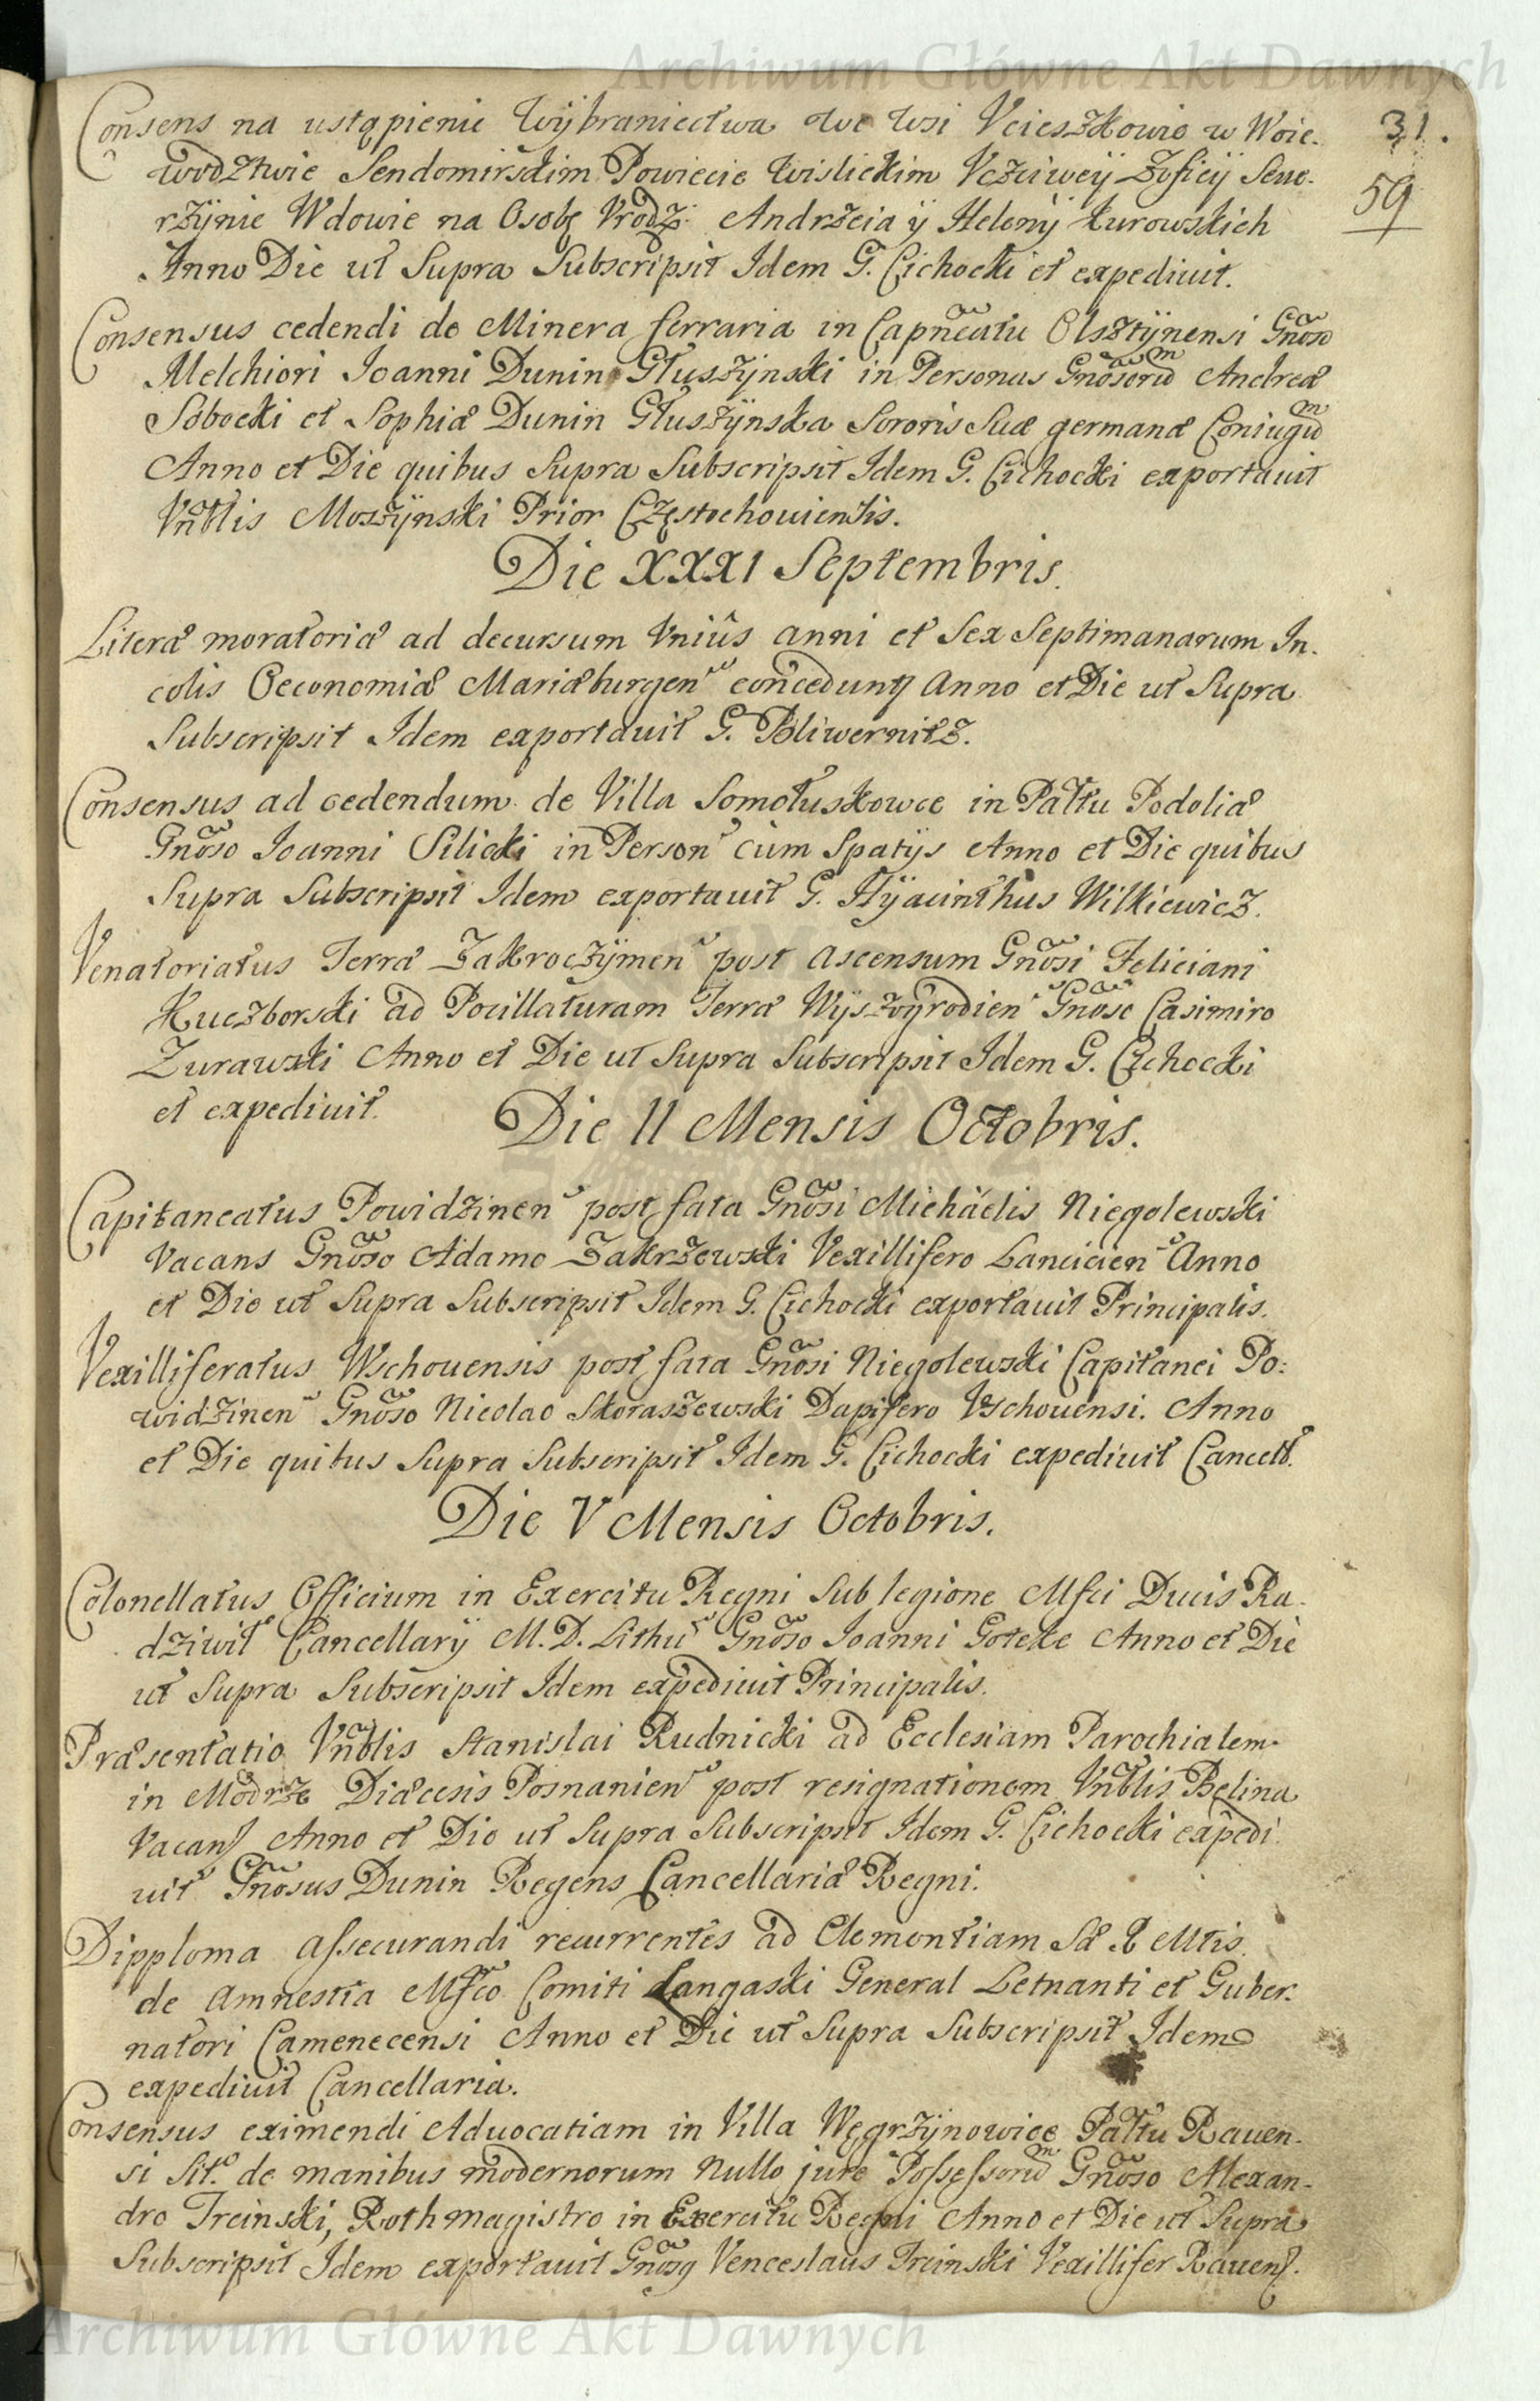 Archiwum Główne Akt Dawnych
31.
59
Consens na ustąpienie Wybraniectwa we Wsi Vcieszkowie w Woie-
wodztwie Sendomirskim Powiecie Wislickim Vczciwey Zofiey Sewe-
rzynie Wdowie na Osobę Vrodz: Andrzeia y Heleny Łurowskich
Anno Die ut Supra Subscripsit Idem G. Cichocki et expediuit.
Consensus cedendi de Minera ferraria in Capneatu Olsztynensi Gnoso
Melchiori Joanni Dunin Głuszynski in Personas Gnosorum Andreæ
Sobocki et Sophiæ Dunin Głuszynska Sororis Suæ germanæ Coniugum
Anno et Die quibus Supra Subscripsit Idem G. Cichocki exportauit
Vnblis Moszynski Prior Częstochouiensis.
Die XXXI Septembris.
Literæ moratoriæ ad decursum Vniûs anni et Sex Septimanarum In-
colis Oeconomiæ Mariæburgen conceduntur Anno et Die ut Supra
Subscripsit Idem exportauit G. Pliwernitz.
Consensus ad cedendum de Villa Somotuskowce in Pałtu Podoliæ
Gnoso Joanni Silicki in Person cum Spatijs Anno et Die quibus
Supra Subscripsit Idem exportauit G. Hyacinthus Wilkiewicz.
Venatoriatus Terræ Zakroczymen post ascensum Gnosi Feliciani
Kuczborski ad Pocillaturam Terræ Wyszogrodien Gnoso Casimiro
Zurawski Anno et Die ut Supra Subscripsit Idem G. Cichocki
et expediuit.
Die II Mensis Octobris.
Capitaneatus Powidzinen post fata Gnosi Michaëlis Niegolewski
Vacans Gnoso Adamo Zakrzewski Vexillifero Lancicien Anno
et Die ut Supra Subscripsit Idem G. Cichocki exportauit Principalis.
Vexilliferatus Wschouensis post fata Gnosi Niegolewski Capitanei Po:
widzinen Gnoso Nicolao Skoraszewski Dapifero Vschouensi. Anno
et Die quibus Supra Subscripsit Idem G. Cichocki expediuit Cancell.
Die V Mensis Octobris.
Colonellatus Officium in Exercitu Regni Sub legione Mfci Ducis Ra-
dziwił Cancellary M. D. Lithu Gnoso Joanni Goteke Anno et Die
ut Supra Subscripsit Idem expediuit Principalis.
Præsentatio Vnblis Stanislai Rudnicki ad Ecclesiam Parochialem
in Modrze Diæcesis Posnanien post resignationem Vnblis Belina
Vacans Anno et Die ut Supra Subscripsit Idem G. Cichocki expedi-
uit Gnosus Dunin Regens Cancellariæ Regni.
Dipploma assecurandi recurrentes ad Clementiam Sæ R Mtis
de Amnestia Mfco Comiti Langaski General Letnanti et Guber-
natori Camenecensi Anno et Die ut Supra Subscripsit Idem
expediuit Cancellaria.
Consensus eximendi Aduocatiam in Villa Węgrzynowice Pałtu Rauen-
si Sit. de manibus modernorum nullo jure Possessorum Gnoso Alexan-
dro Trcinski, Rothmagistro in Exercitu Regni Anno et Die ut Supra
Subscripsit Idem exportauit Gnosus Venceslaus Trcinski Vexillifer Rauens.
Archiwum Główne Akt Dawnych